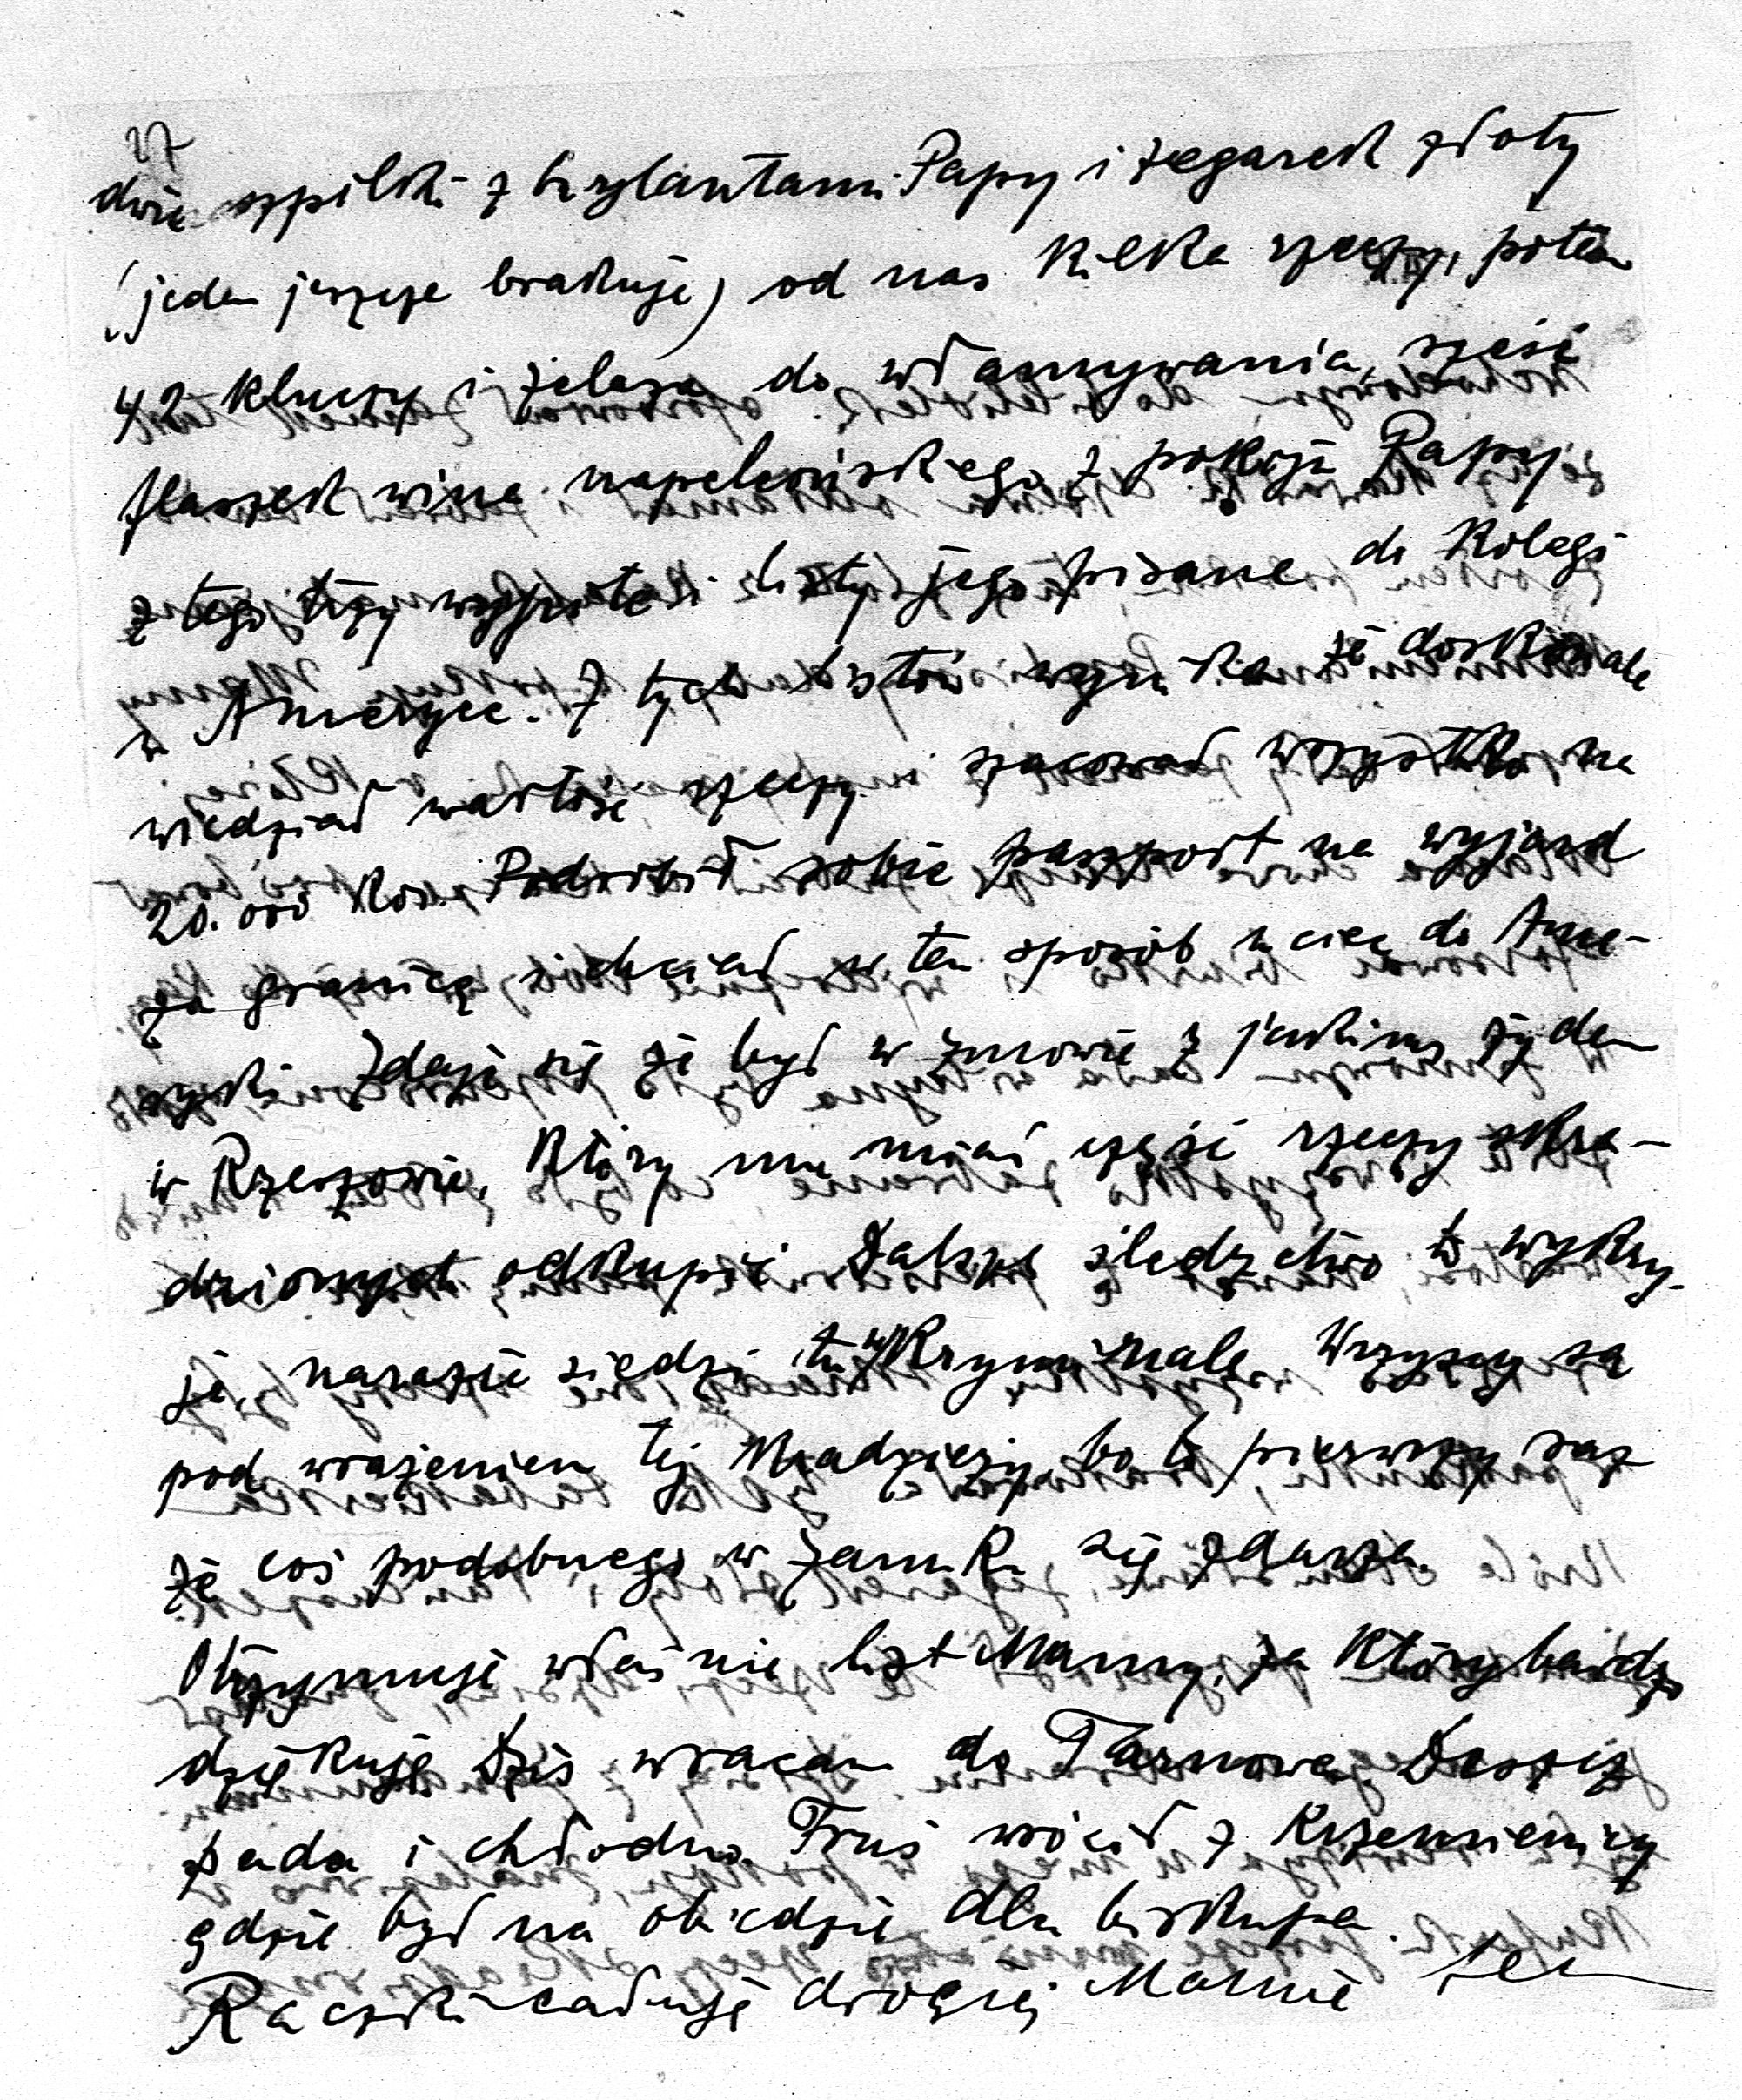 27
dwie szpilki z brylantami Papy i zegarek złoty
(jeden jeszcze brakuje) od nas kilka rzeczy, potem
42 kluczy i żelaza do włamywania, sześć
flaszek wina napoleońskiego z pokoju Papy
z tego trzy wypite i listy jego pisane do kolegi
w Ameryce. Z tych listów wynika że doskonale
wiedział wartość rzeczy i szacował wszystko na
20.000 Kor. Podrobił sobie paszport na wyjazd
za granicę i chciał w ten sposób uciec do Ame-
ryki. Zdaje się że był w zmowie z jakimś żydem
w Rzeszowie, który mu miał część rzeczy skra-
dzionych odkupić. Dalsze śledztwo to wykry-
je, narazie siedzi tu w Kryminale. Wszyscy są
pod wrażeniem tej kradzieży, bo to pierwszy raz
że coś podobnego w zamku się zdarza.
Otrzymuję właśnie list Mamy, za który bardzo
dziękuję. Dziś wracam do Tarnowa. Deszcz
pada i chłodno. Fruś wrócił z Krzemienicy
gdzie był na obiedzie dla biskupa.
Rączki całuję drogiej Mamie